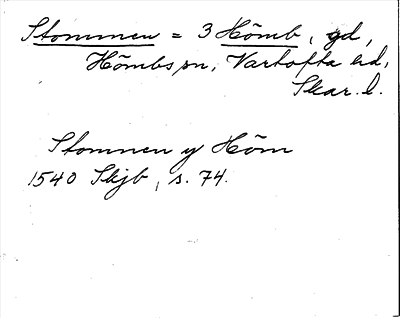 Stommen = 3 Hömb, gd,
Hömbs sn, Vartofta hd,
Skar. l.
Stommen y Höm
1540 Skjb, s. 74.